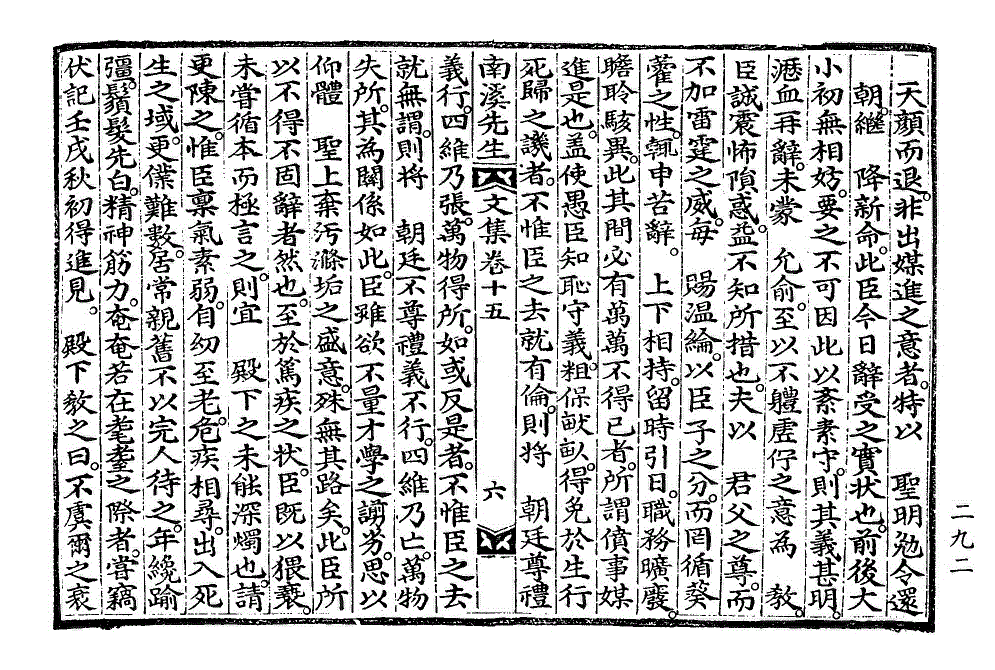 天顔而退。非出媒進之意者。特以 聖明勉令還
朝。繼 降新命。此臣今日辭受之實狀也。前後大
小初無相妨。要之不可因此以紊素守。則其義甚明。
瀝血再辭。未蒙 允俞。至以不軆虛佇之意爲 教。
臣誠震怖隕惑。益不知所措也。夫以 君父之尊。而
不加雷霆之威。每 賜溫綸。以臣子之分。而罔循葵
藿之性。輒申苦辭。 上下相持。留時引日。職務曠廢。
瞻聆駭異。此其間必有萬萬不得已者。所謂僨事媒
進是也。盖使愚臣知恥守義。粗保畎畝。得免於生行
死歸之譏者。不惟臣之去就有倫。則將 朝廷尊禮
南溪先生文集卷十五 六
義行。四維乃張。萬物得所。如或反是者。不惟臣之去
就無謂。則將 朝廷不尊禮義不行。四維乃亡。萬物
失所。其為關係如此。臣雖欲不量才學之謭劣。思以
仰體 聖上棄汚滌垢之盛意。殊無其路矣。此臣所
以不得不固辭者然也。至於篤疾之狀。臣既以猥褻。
未嘗循本而極言之。則宜 殿下之未能深燭也。請
更陳之。惟臣稟氣素弱。自幼至老。危疾相尋。出入死
生之域。更僕難數。居常親舊不以完人待之。年纔踰
彊。鬚髮先白。精神筋力。奄奄若在耄耋之際者。嘗竊
伏記壬戌秋初得進見。 殿下教之曰。不虞爾之衰
二九二